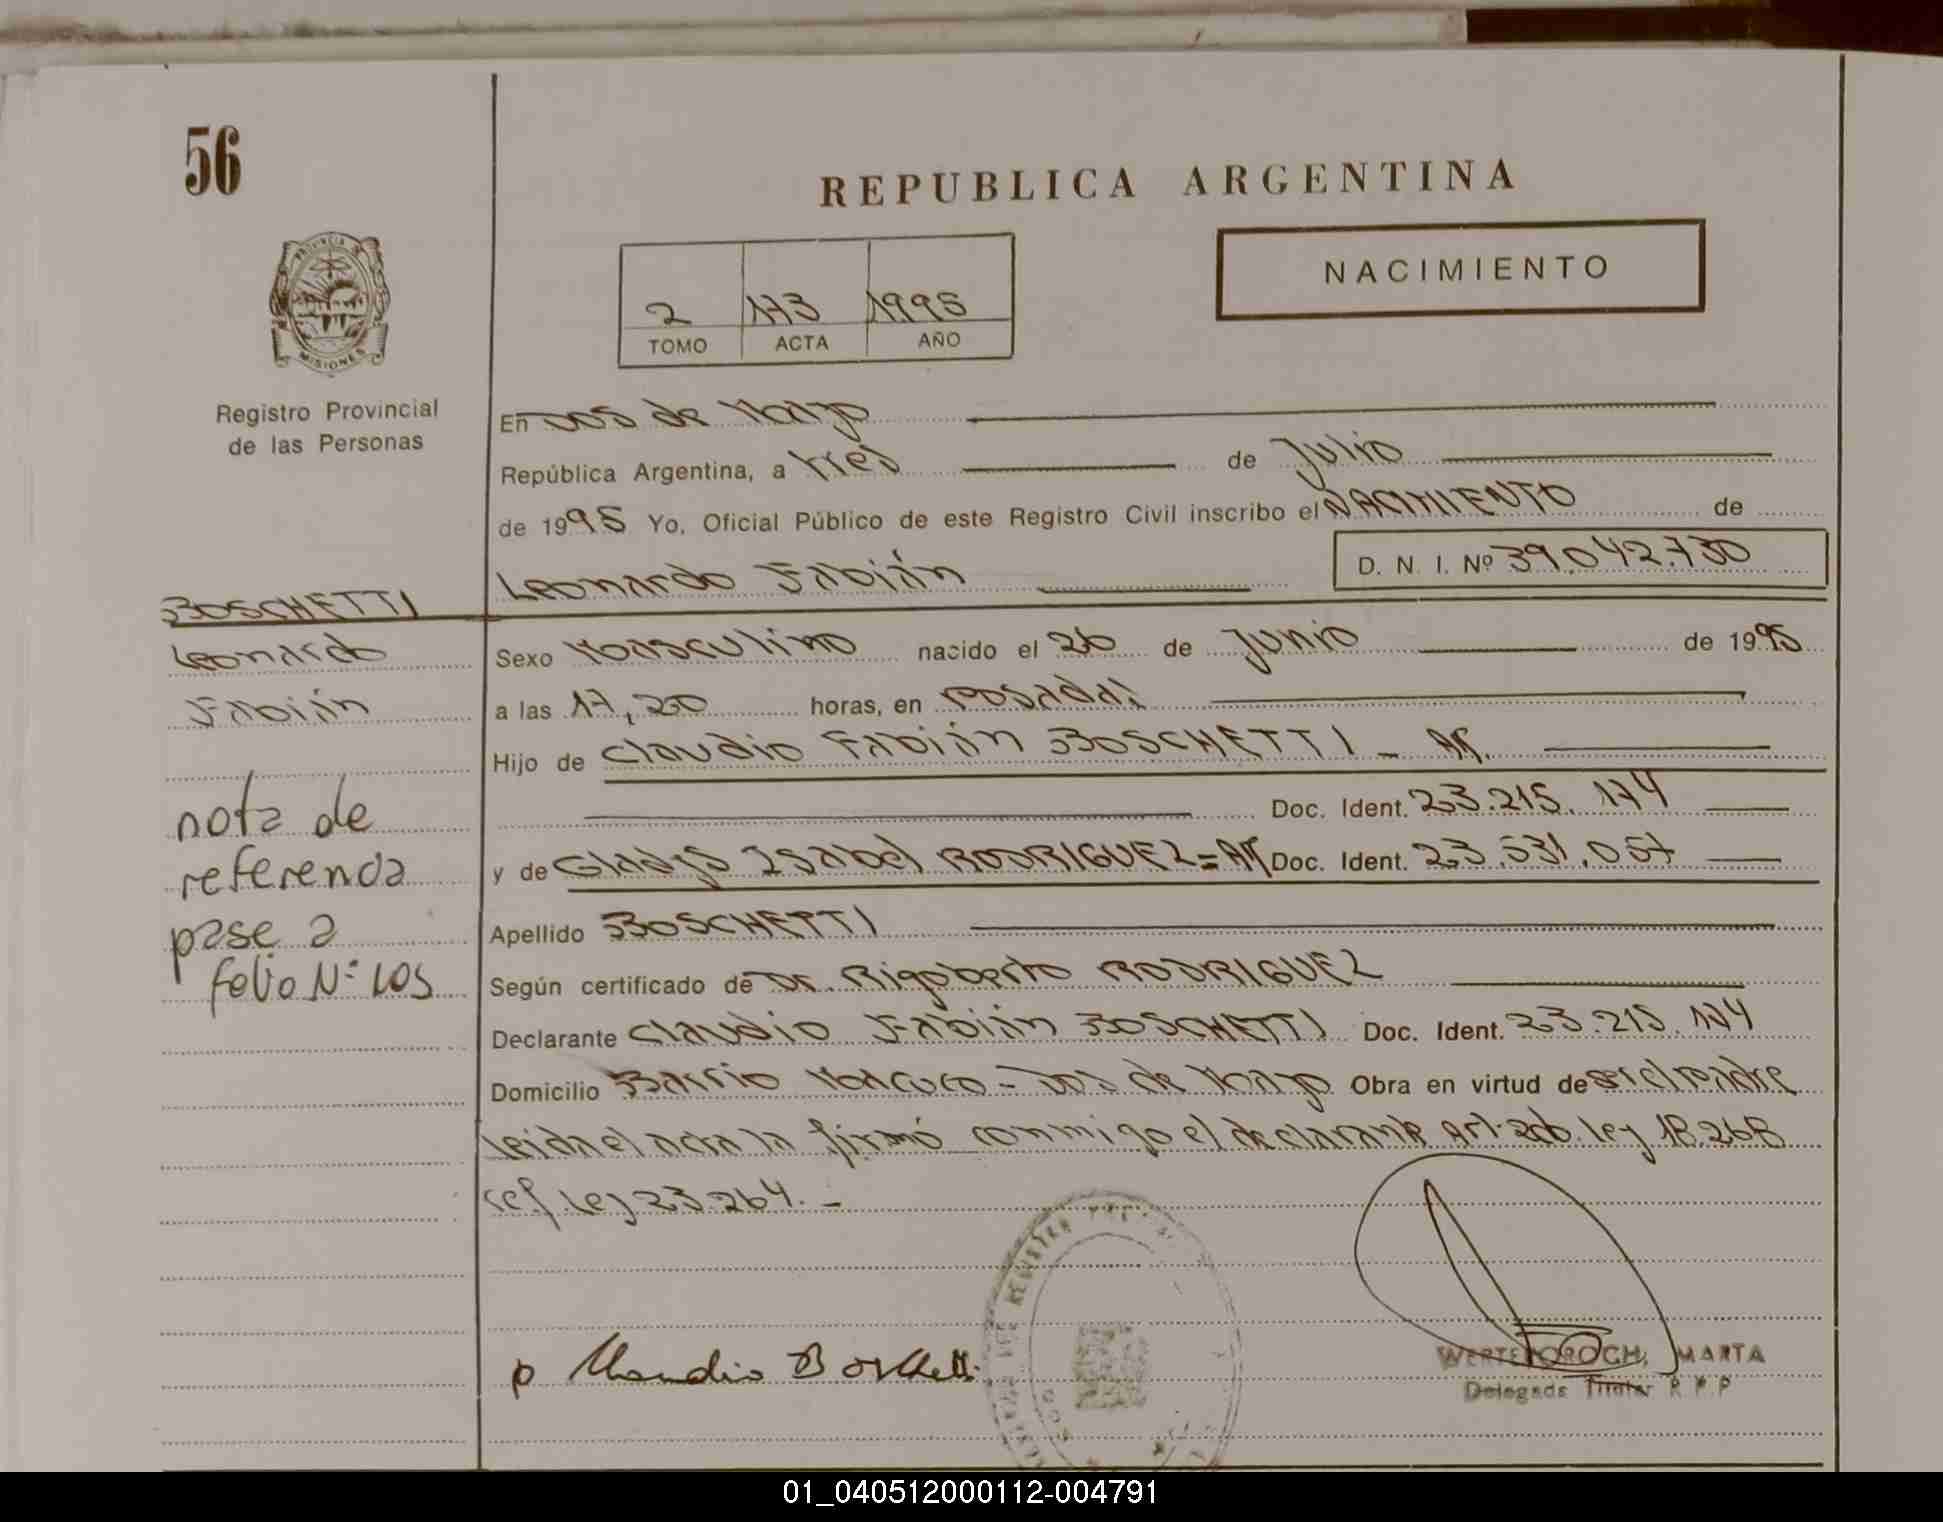 56
REPUBLICA ARGENTINA
NACIMIENTO
2 173 1995
TOMO ACTA AÑO
PROVINCIA DE
MISIONES
Registro Provincial
de las Personas
En Dos de Mayo
República Argentina, a tres de Julio
de 1995 Yo, Oficial Público de este Registro Civil inscribo el NACIMIENTO de
Leonardo Fabián D. N. I. Nº 39.042.730
BOSCHETTI
Leonardo
Fabián
Sexo Masculino nacido el 26 de Junio de 1995
a las 17,20 horas, en posadas
Hijo de Claudio Fabián BOSCHETTI - Ar.
Doc. Ident. 23.215.174
y de Gladys Isabel RODRIGUEZ = Ar Doc. Ident. 23.531.057
Apellido BOSCHETTI
Según certificado de Dr. Rigoberto RODRIGUEZ
Declarante Claudio Fabián BOSCHETTI Doc. Ident. 23.215.174
Domicilio Barrio Macuco - Dos de Mayo Obra en virtud de ser el padre
leida el acta la firmó conmigo el declarante Art. 2do. ley 18.268
ref. ley 23.264. -
nota de
referencia
pase a
folio Nº 105
Claudio Boschetti
WERTE OROCH, MARTA
Delegada Titular R P P
01_040512000112-004791